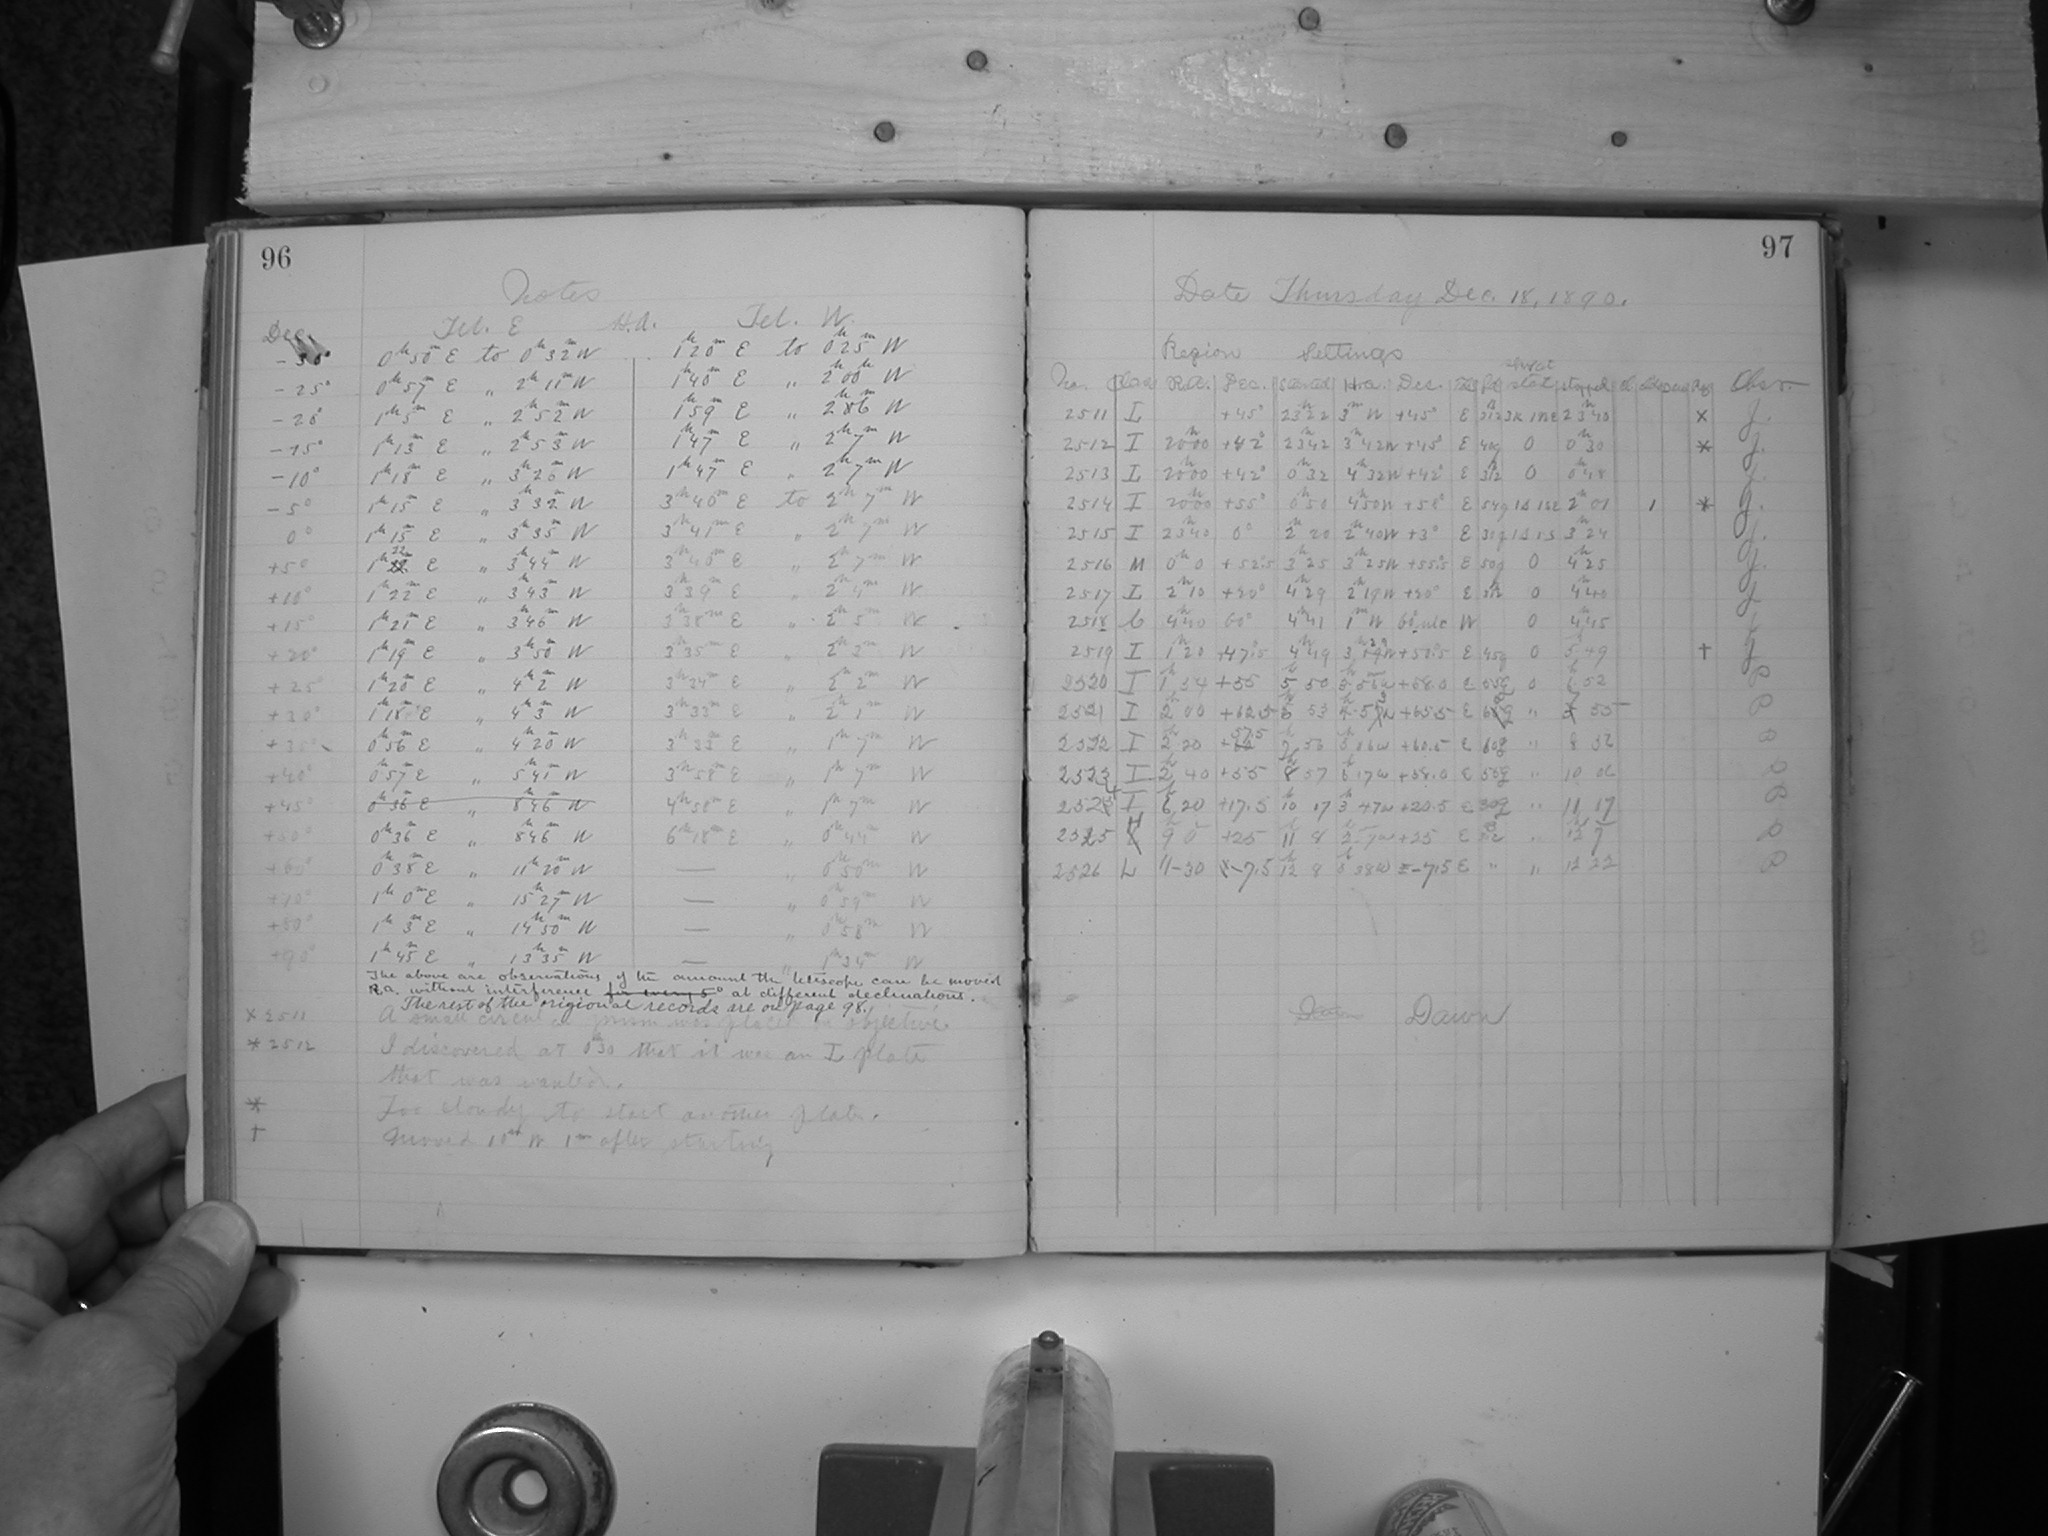 96
Notes
Dec. Tel. E H.A. Tel. W.
-30° 0h50m E to 0h32m W 1h20m E to 0h25m W
-25° 0h57m E " 2h11m W 1h40m E " 2h00m W
-20° 1h5m E " 2h52m W 1h59m E "
-15° 1h13m E " 2h53m W 1h47m E " 2h7m W
-10° 1h18m E " 3h26m W 1h47m E " 2h7m W
-5° 1h15m E " 3h32m W 3h40m E to 2h7m W
0° 1h15m E " 3h35m W 3h41m E " 2h7m W
+5° 1h22m E " 3h44m W 3h40m E " 2h7m W
+10° 1h22m E " 3h43m W 3h39m E " 2h4m W
+15° 1h21m E " 3h46m W 3h38m E " 2h5m W
+20° 1h19m E " 3h50m W 3h35m E " 2h2m W
+25° 1h20m E " 4h2m W 3h34m E " 2h2m W
+30° 1h18m E " 4h3m W 3h33m E " 2h1m W
+35° 0h56m E " 4h20m W 3h23m E " 1h7m W
+40° 0h57m E " 5h41m W 3h58m E " 1h7m W
+45° 0h36m E 8h46m W 4h58m E " 1h7m W
+50° 0h36m E " 8h46m W 6h18m E " 0h44m W
+60° 0h38m E " 11h20m W — " 0h50m W
+70° 1h0m E " 15h27m W — " 0h59m W
+80° 1h3m E " 14h50m W — " 0h58m W
+90° 1h45m E " 13h35m W — " 1h34m W
The above are observations of the amount the telescope can be moved
R.a. without interference for every 5° at different declinations.
The rest of the origional records are on page 98.
× 2511 A small circular prism was placed on objective
* 2512 I discovered at 0h30 that it was an I plate
that was wanted.
* Too cloudy to start another plate.
† Moved 10m W 1m after starting
97
Date Thursday Dec. 18, 1890.
Region Settings
No. Class R.A. Dec. H.A. Dec. stopped Obsr.
2511 L +45° 23 22 3m W +45° E 23h40 × J.
2512 I 20h00 +42° 23 42 3h42W +45° E 40g 0 0h30 * J.
2513 I 20h00 +42° 0h32 4h32W +42° E 0 0h48 J.
2514 I 20h00 +55° 0h50 4h50W +58° E 54g 1S 1SE 2h01 1 * J.
2515 I 23 40 0° 2h20 2h40W +3° E 3h24 J.
2516 M 0h0 +52.5 3h25 3h25W +55.5 E 50g 0 4h25 J.
2517 L 2h10 +20° 4h29 2h19W +20° E 0 4h40 J
2518 C 4h40 60° 4h41 1m W 60° W 0 4h45 J
2519 I 1h20 +47.5 4h49 3h29W +50.5 E 45g 0 5h49 † J
2520 I 1h54 +55 5h50 +58.0 E 55g 0 6h52 P
2521 I 2h00 +62.5 6h53 4h53W +65.5 E " 7 55 P
2522 I 2h20 +57.5 7h56 5h36W +60.5 E 60g " 8 32 P
2523 I 2h40 +55 8h57 6h17W +58.0 E 58g " 10 02 P
2524 I 6h20 +17.5 10h 17 3h47W +20.5 E 30g " 11 17 P
2525 H 9h0 +25 11h 8 2h7W +25 E " 12h 9 P
2526 L 11-30 -7.5 12h 8 0h38W -7.5 E " " 12 22 P
Dawn Dawn